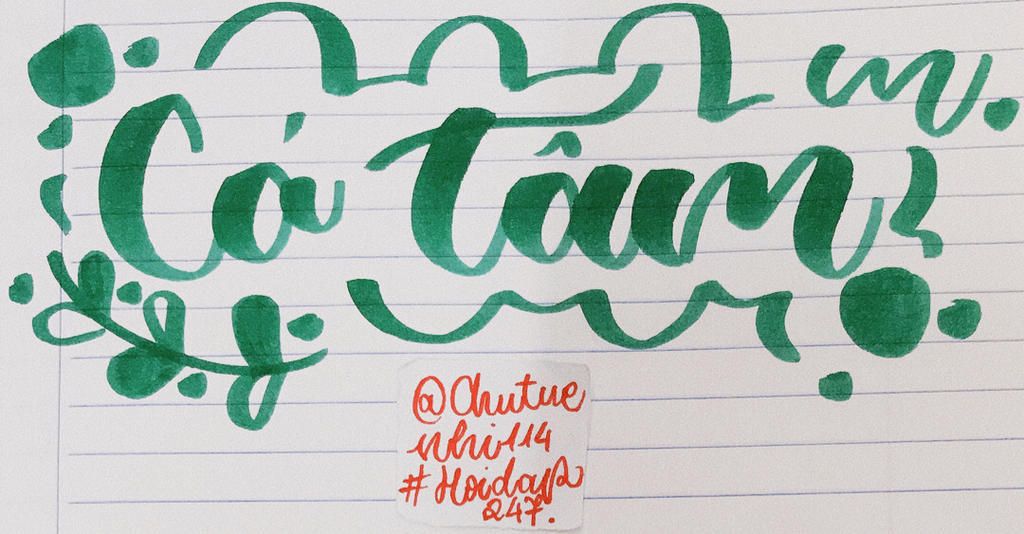 Cá tầm
@Chutue
nhi114
#Hoidap
247.